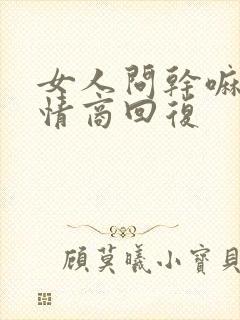 女人問幹嘛
情商回復
顾莫曦小寶貝